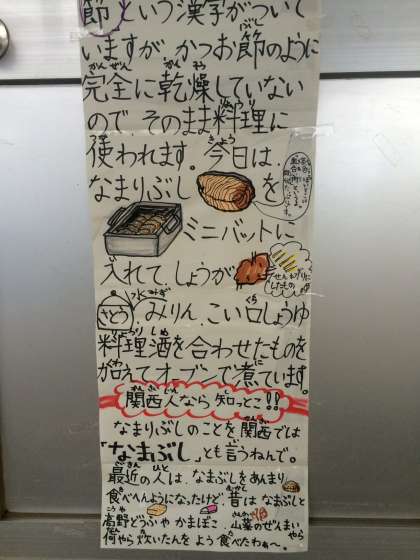 節という漢字がついて
いますが かつお節のように
完全に乾燥していない
ので そのまま料理に
使われます。今日は、
なまりぶし を
ミニバットに
入れて しょうが
せん切りに
したもの
さとう、水、みりん、こい口しょうゆ
料理酒を合わせたものを
加えてオーブンで煮ています。
関西人なら知っとこ!!
なまりぶしのことを関西では
「なまぶし」とも言うねんで。
最近の人は、なまぶしをあんまり
食べへんようになったけど、昔は なまぶしと
高野どうふや かまぼこ、山菜のぜんまいや
筍やら炊いたんを よう食べたわぁ〜